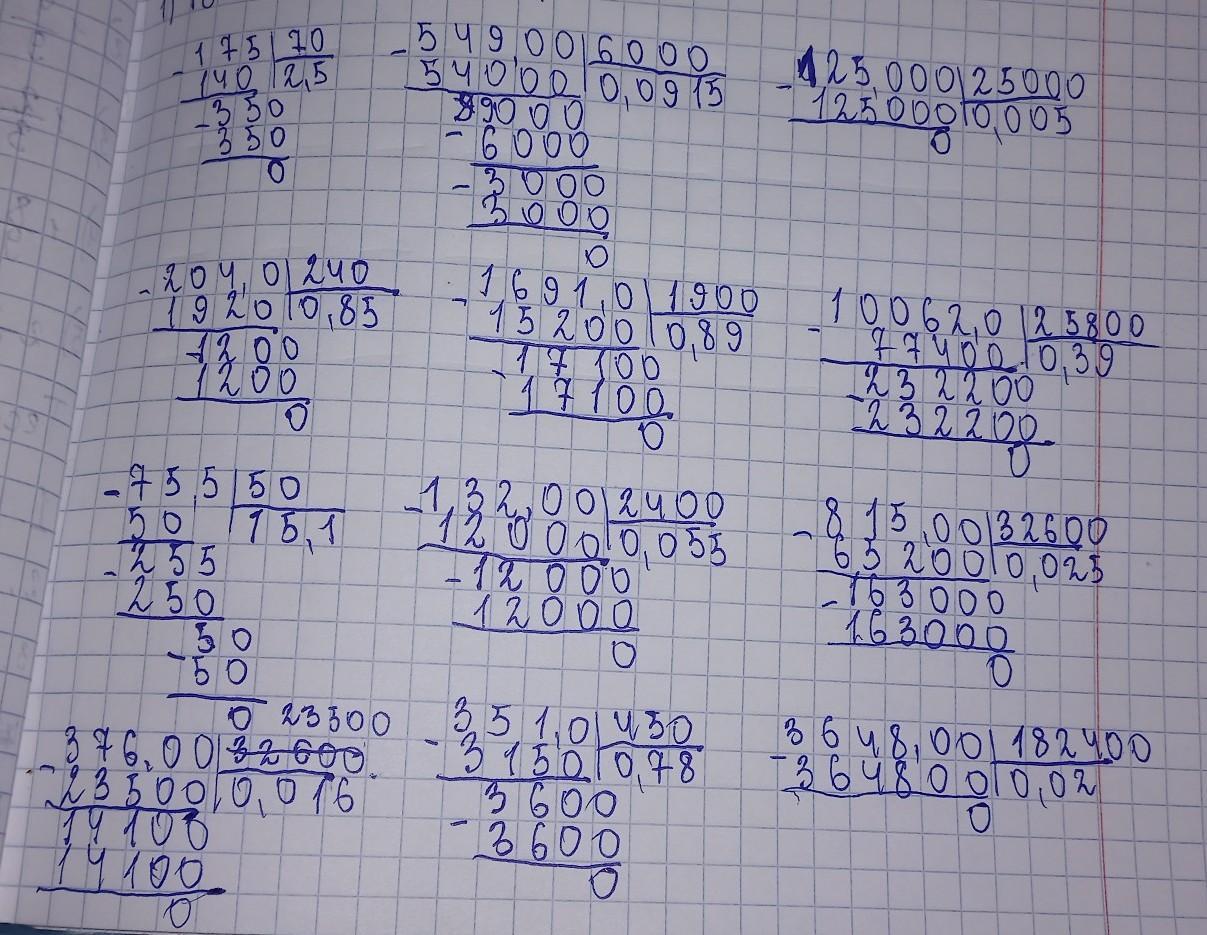 175 70
140 2,5
350
350
0
549,00 6000
54000 0,0915
9000
6000
3000
3000
0
125,000 25000
125000 0,005
0
204,0 240
1920 0,85
1200
1200
0
1691,0 1900
15200 0,89
17100
17100
0
10062,0 25800
77400 0,39
232200
232200
0
75,5 50
50 15,1
255
250
50
50
0
132,00 2400
12000 0,055
12000
12000
0
815,00 32600
65200 0,025
163000
163000
0
23500
376,00 32600
23500 0,016
14100
14100
0
351,0 450
3150 0,78
3600
3600
0
3648,00 182400
364800 0,02
0